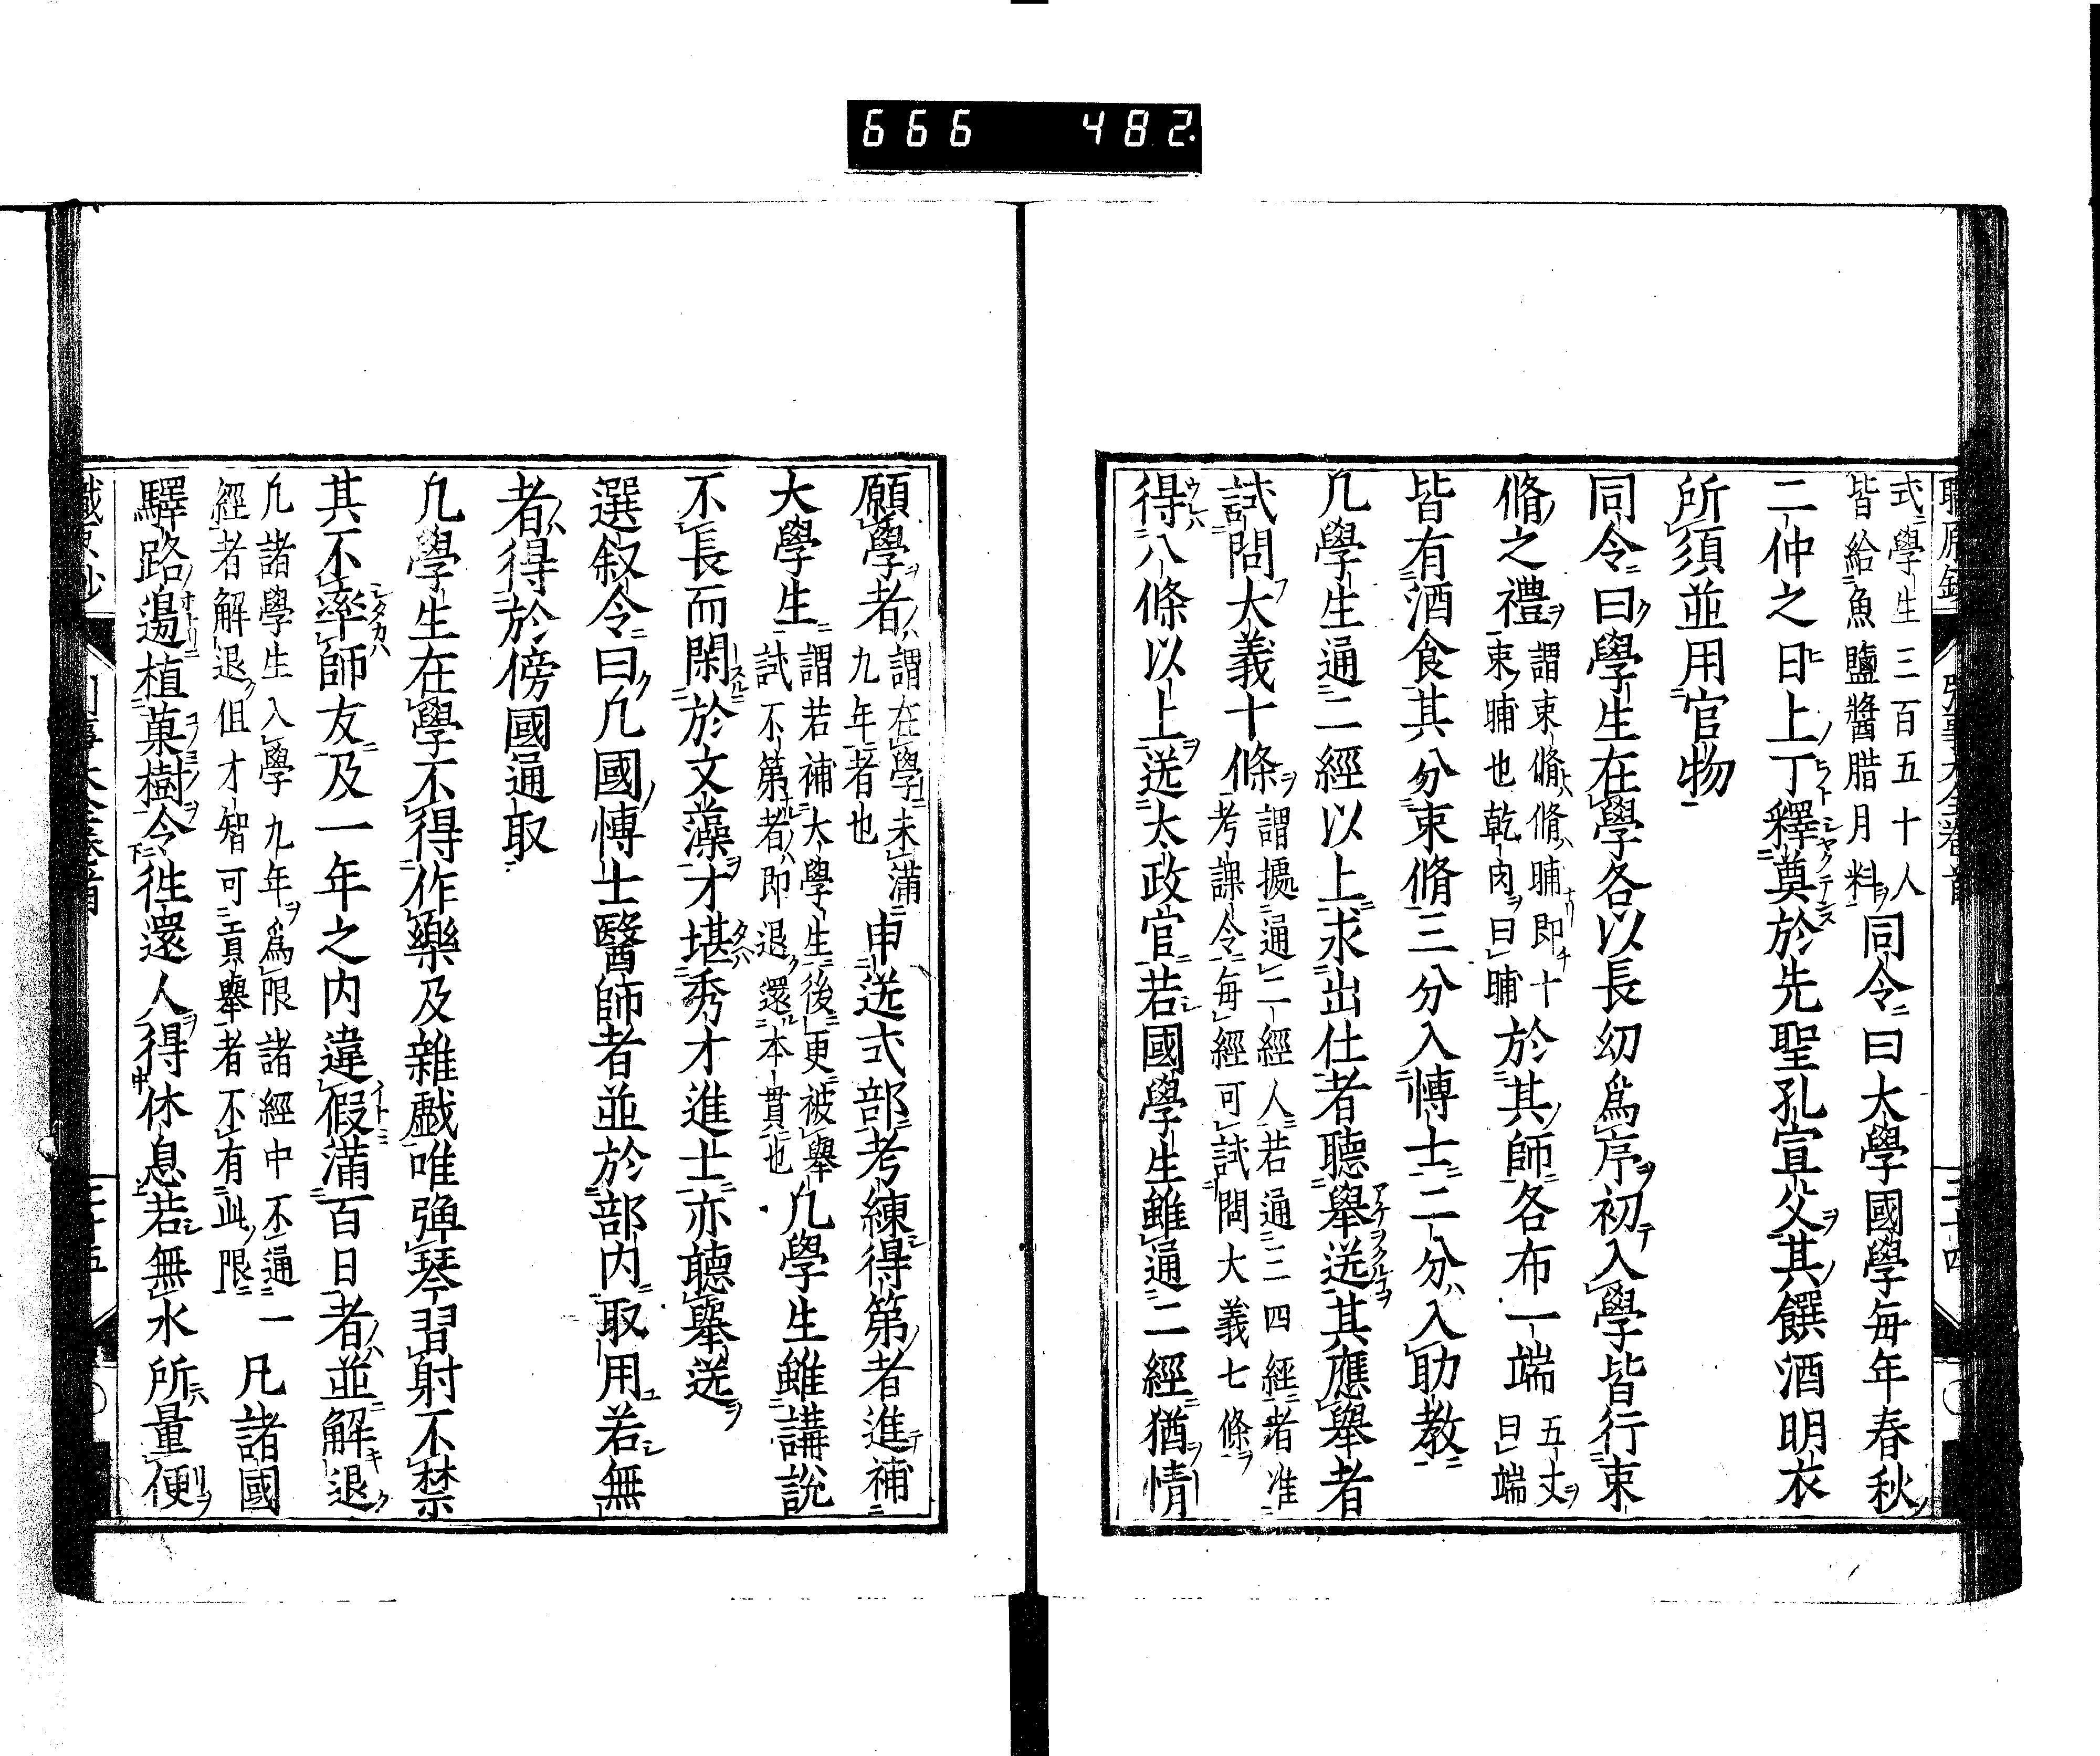 666 482
式學生三百五十人
皆給魚鹽醬腊月料 同令曰大學國學每年春秋
二仲之月上丁釋奠於先聖孔宣父其饌酒明衣
所須並用官物
同令曰學生在學各以長幼爲序初入學皆行束
脩之禮 謂束脩脩脯即十
束脯也乾肉曰脯 於其師各布一端 五丈
曰端
皆有酒食其分束脩三分入博士二分入助教
凡學生通二經以上求出仕者聽舉送其應舉者
試問大義十條 謂擬通二經人若通三四經者准
考課令每經可試問大義七條
得八條以上送太政官若國學生雖通二經猶情
願學者 謂在學未滿
九年者也 申送式部考練得第者進補
大學生 謂若補大學生後更被舉
試不第者即退還本貫也 凡學生雖講説
不長而閑於文藻才堪秀才進士亦聽舉送
選叙令曰凡國博士醫師者並於部内取用若無
者得於傍國通取
凡學生在學不得作樂及雜戯唯彈琴習射不禁
其不率師友及一年之内違假滿百日者並解退
凡諸學生入學九年爲限諸經中不通一
經者解退但才智可貢舉者不有此限 凡諸國
驛路邊植菓樹令徃還人得休息若無水所量便
職原抄
三十五